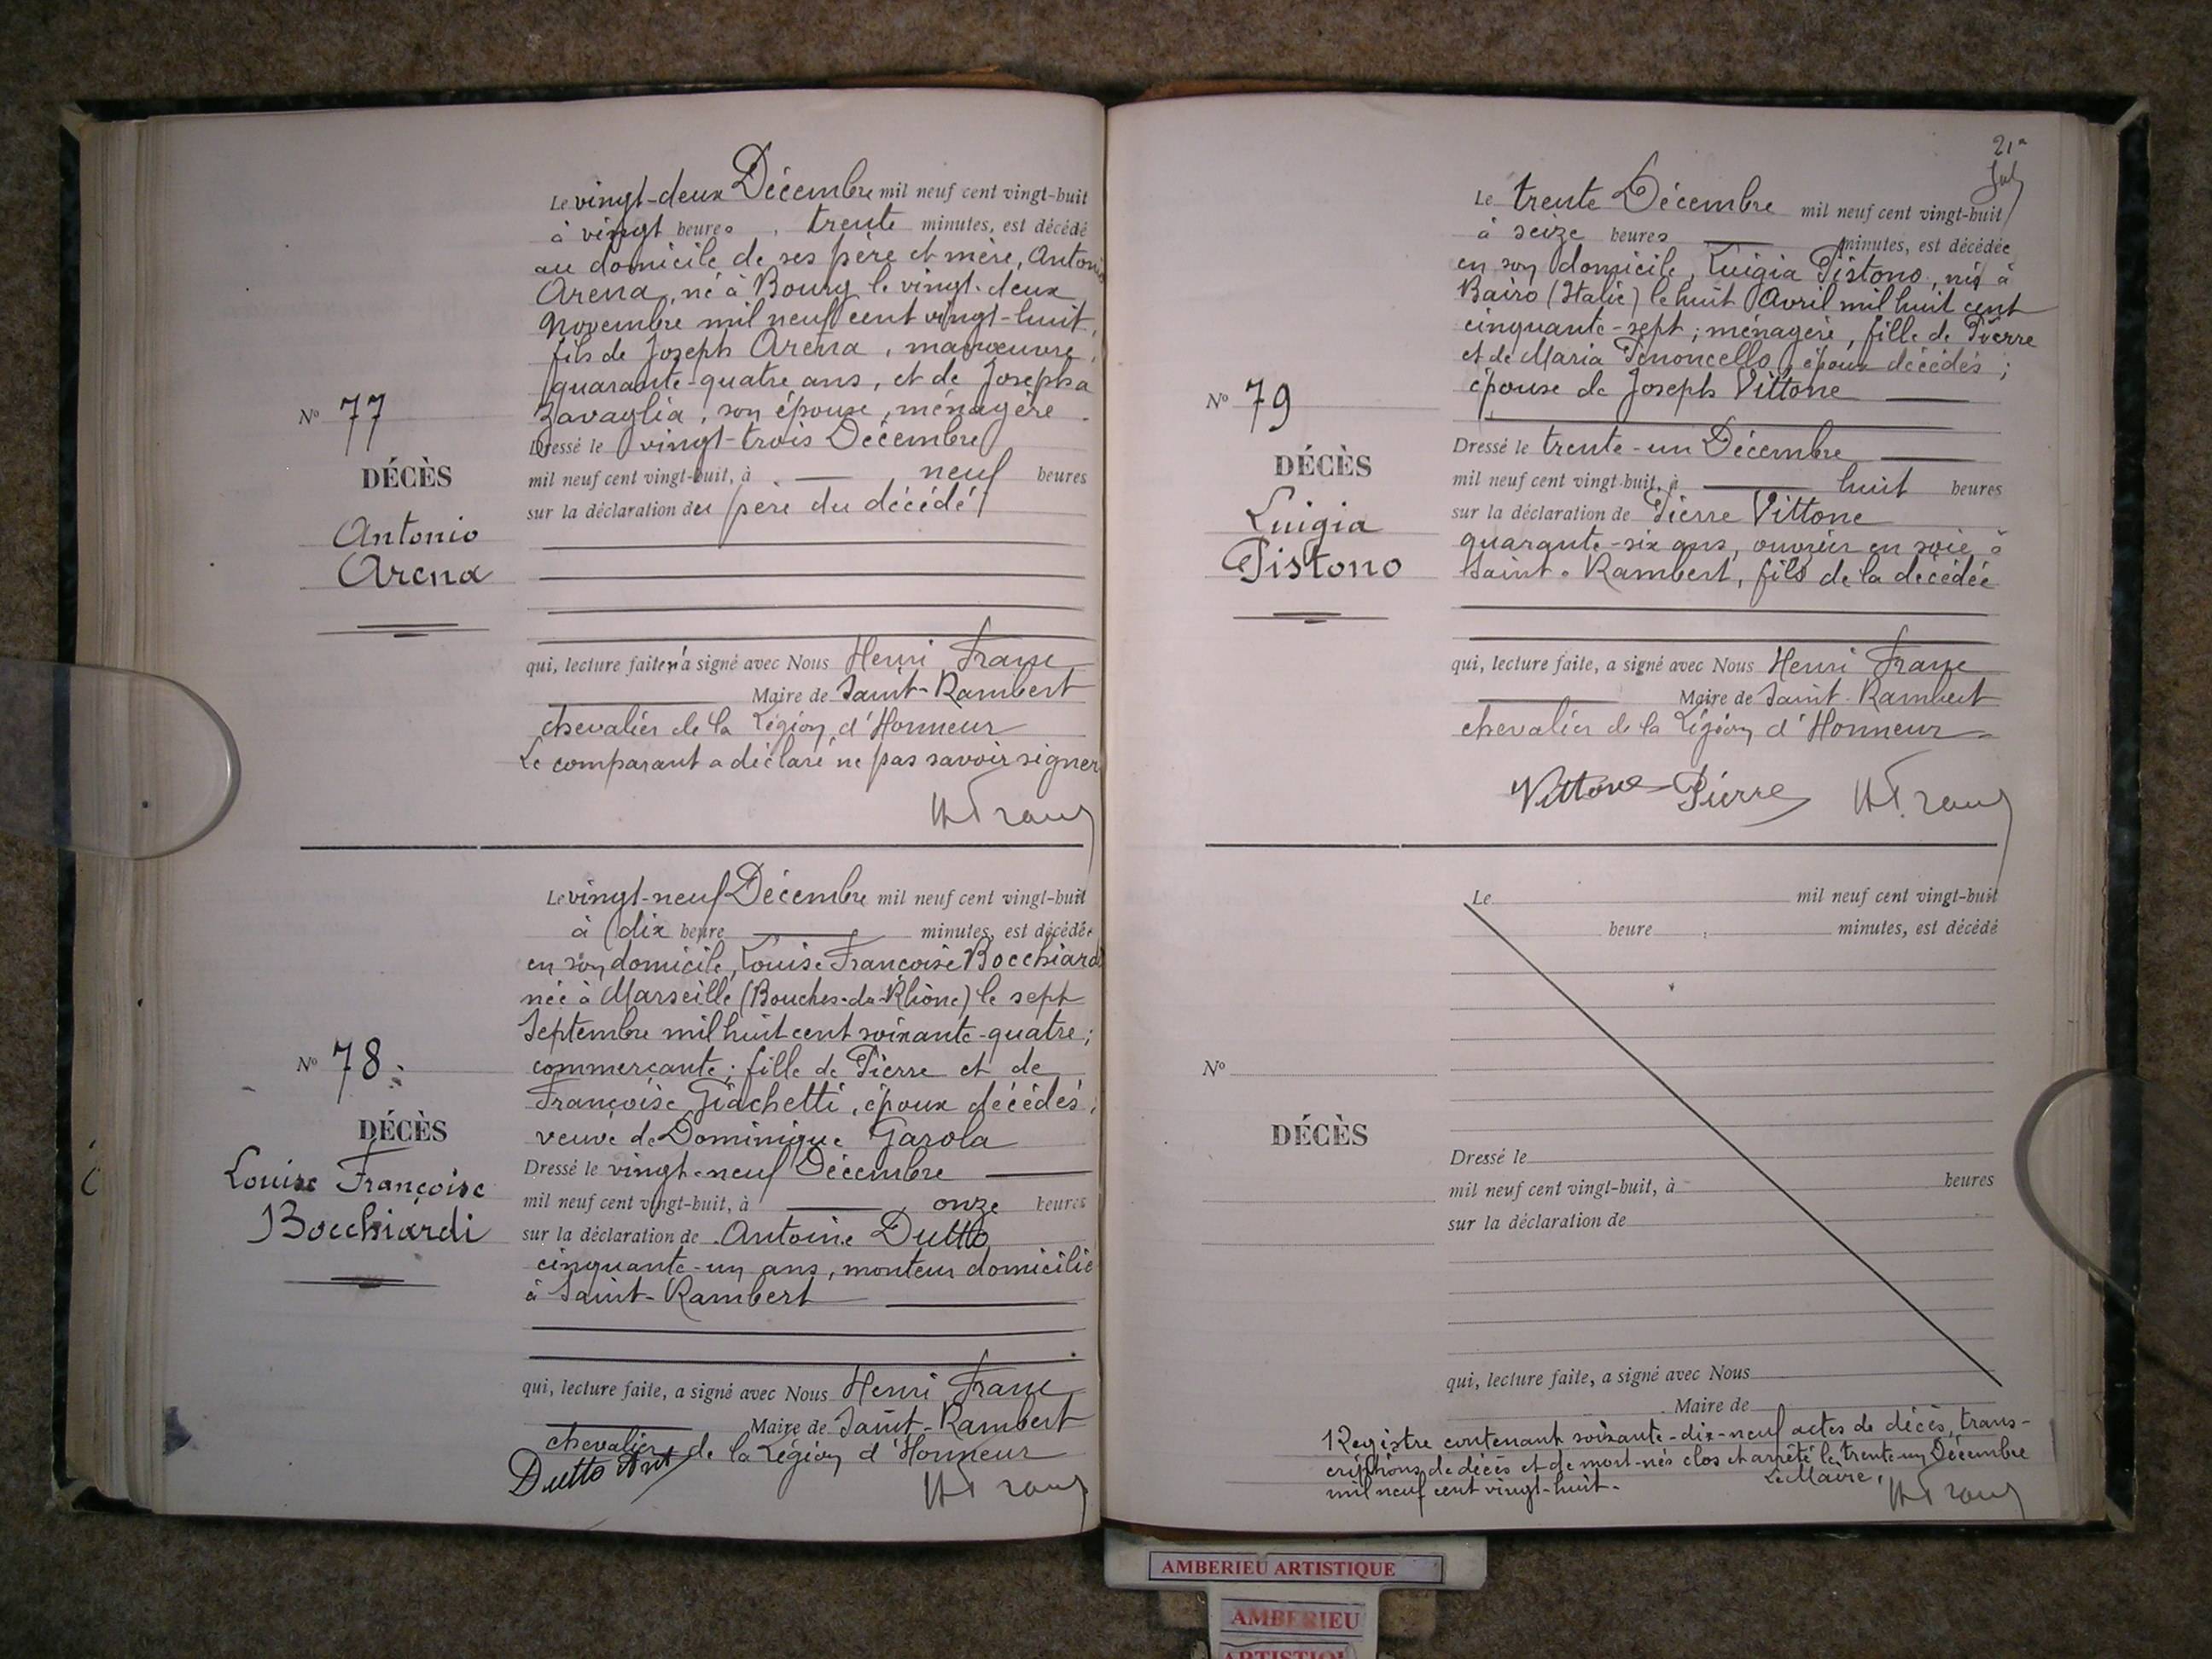 Le vingt-deux Décembre mil neuf cent vingt-huit
à vingt heures, trente minutes, est décédé
au domicile de ses père et mère, Antonio
Arena, né à Bourg le vingt-deux
Novembre mil neuf cent vingt-huit,
fils de Joseph Arena, manœuvre,
quarante-quatre ans, et de Josepha
Zavaglia, son épouse, ménagère.
Dressé le vingt-trois Décembre
mil neuf cent vingt-huit, à neuf heures
sur la déclaration du père du décédé
qui, lecture faite n'a signé avec Nous Henri Franc
Maire de Saint-Rambert
chevalier de la Légion d'Honneur
Le comparant a déclaré ne pas savoir signer
N° 77
DÉCÈS
Antonio
Arena
HFranc
Le vingt-neuf Décembre mil neuf cent vingt-huit
à dix heure minutes, est décédée
en son domicile, Louise Françoise Bocchiardi
née à Marseille (Bouches-du-Rhône) le sept
Septembre mil huit cent soixante-quatre;
commerçante; fille de Pierre et de
Françoise Giachetti, époux décédés,
veuve de Dominique Garola
Dressé le vingt-neuf Décembre
mil neuf cent vingt-huit, à onze heures
sur la déclaration de Antoine Dutto
cinquante-un ans, monteur domicilié
à Saint-Rambert
qui, lecture faite, a signé avec Nous Henri Franc
Maire de Saint-Rambert
chevalier de la Légion d'Honneur
Dutto Ant
HFranc
N° 78
DÉCÈS
Louise Françoise
Bocchiardi
21
Le trente Décembre mil neuf cent vingt-huit
à seize heures minutes, est décédée
en son domicile, Luigia Pistono, née à
Bairo (Italie) le huit Avril mil huit cent
cinquante-sept; ménagère, fille de Pierre
et de Maria époux décédés;
épouse de Joseph Vittone
Dressé le trente-un Décembre
mil neuf cent vingt-huit, à huit heures
sur la déclaration de Pierre Vittone
quarante-six ans, ouvrier en soie à
Saint-Rambert, fils de la décédée
qui, lecture faite, a signé avec Nous Henri Franc
Maire de Saint-Rambert
chevalier de la Légion d'Honneur
Vittone Pierre HFranc
N° 79
DÉCÈS
Luigia
Pistono
Le mil neuf cent vingt-huit
heure , minutes, est décédé
N°
DÉCÈS
Dressé le
mil neuf cent vingt-huit, à heures
sur la déclaration de
qui, lecture faite, a signé avec Nous
Maire de
Registre contenant soixante-dix-neuf actes de décès, trans-
criptions de décès et de mort-nés clos et arrêté le trente-un Décembre
mil neuf cent vingt-huit.
Le Maire,
HFranc
AMBERIEU ARTISTIQUE
AMBERIEU
ARTISTIQUE